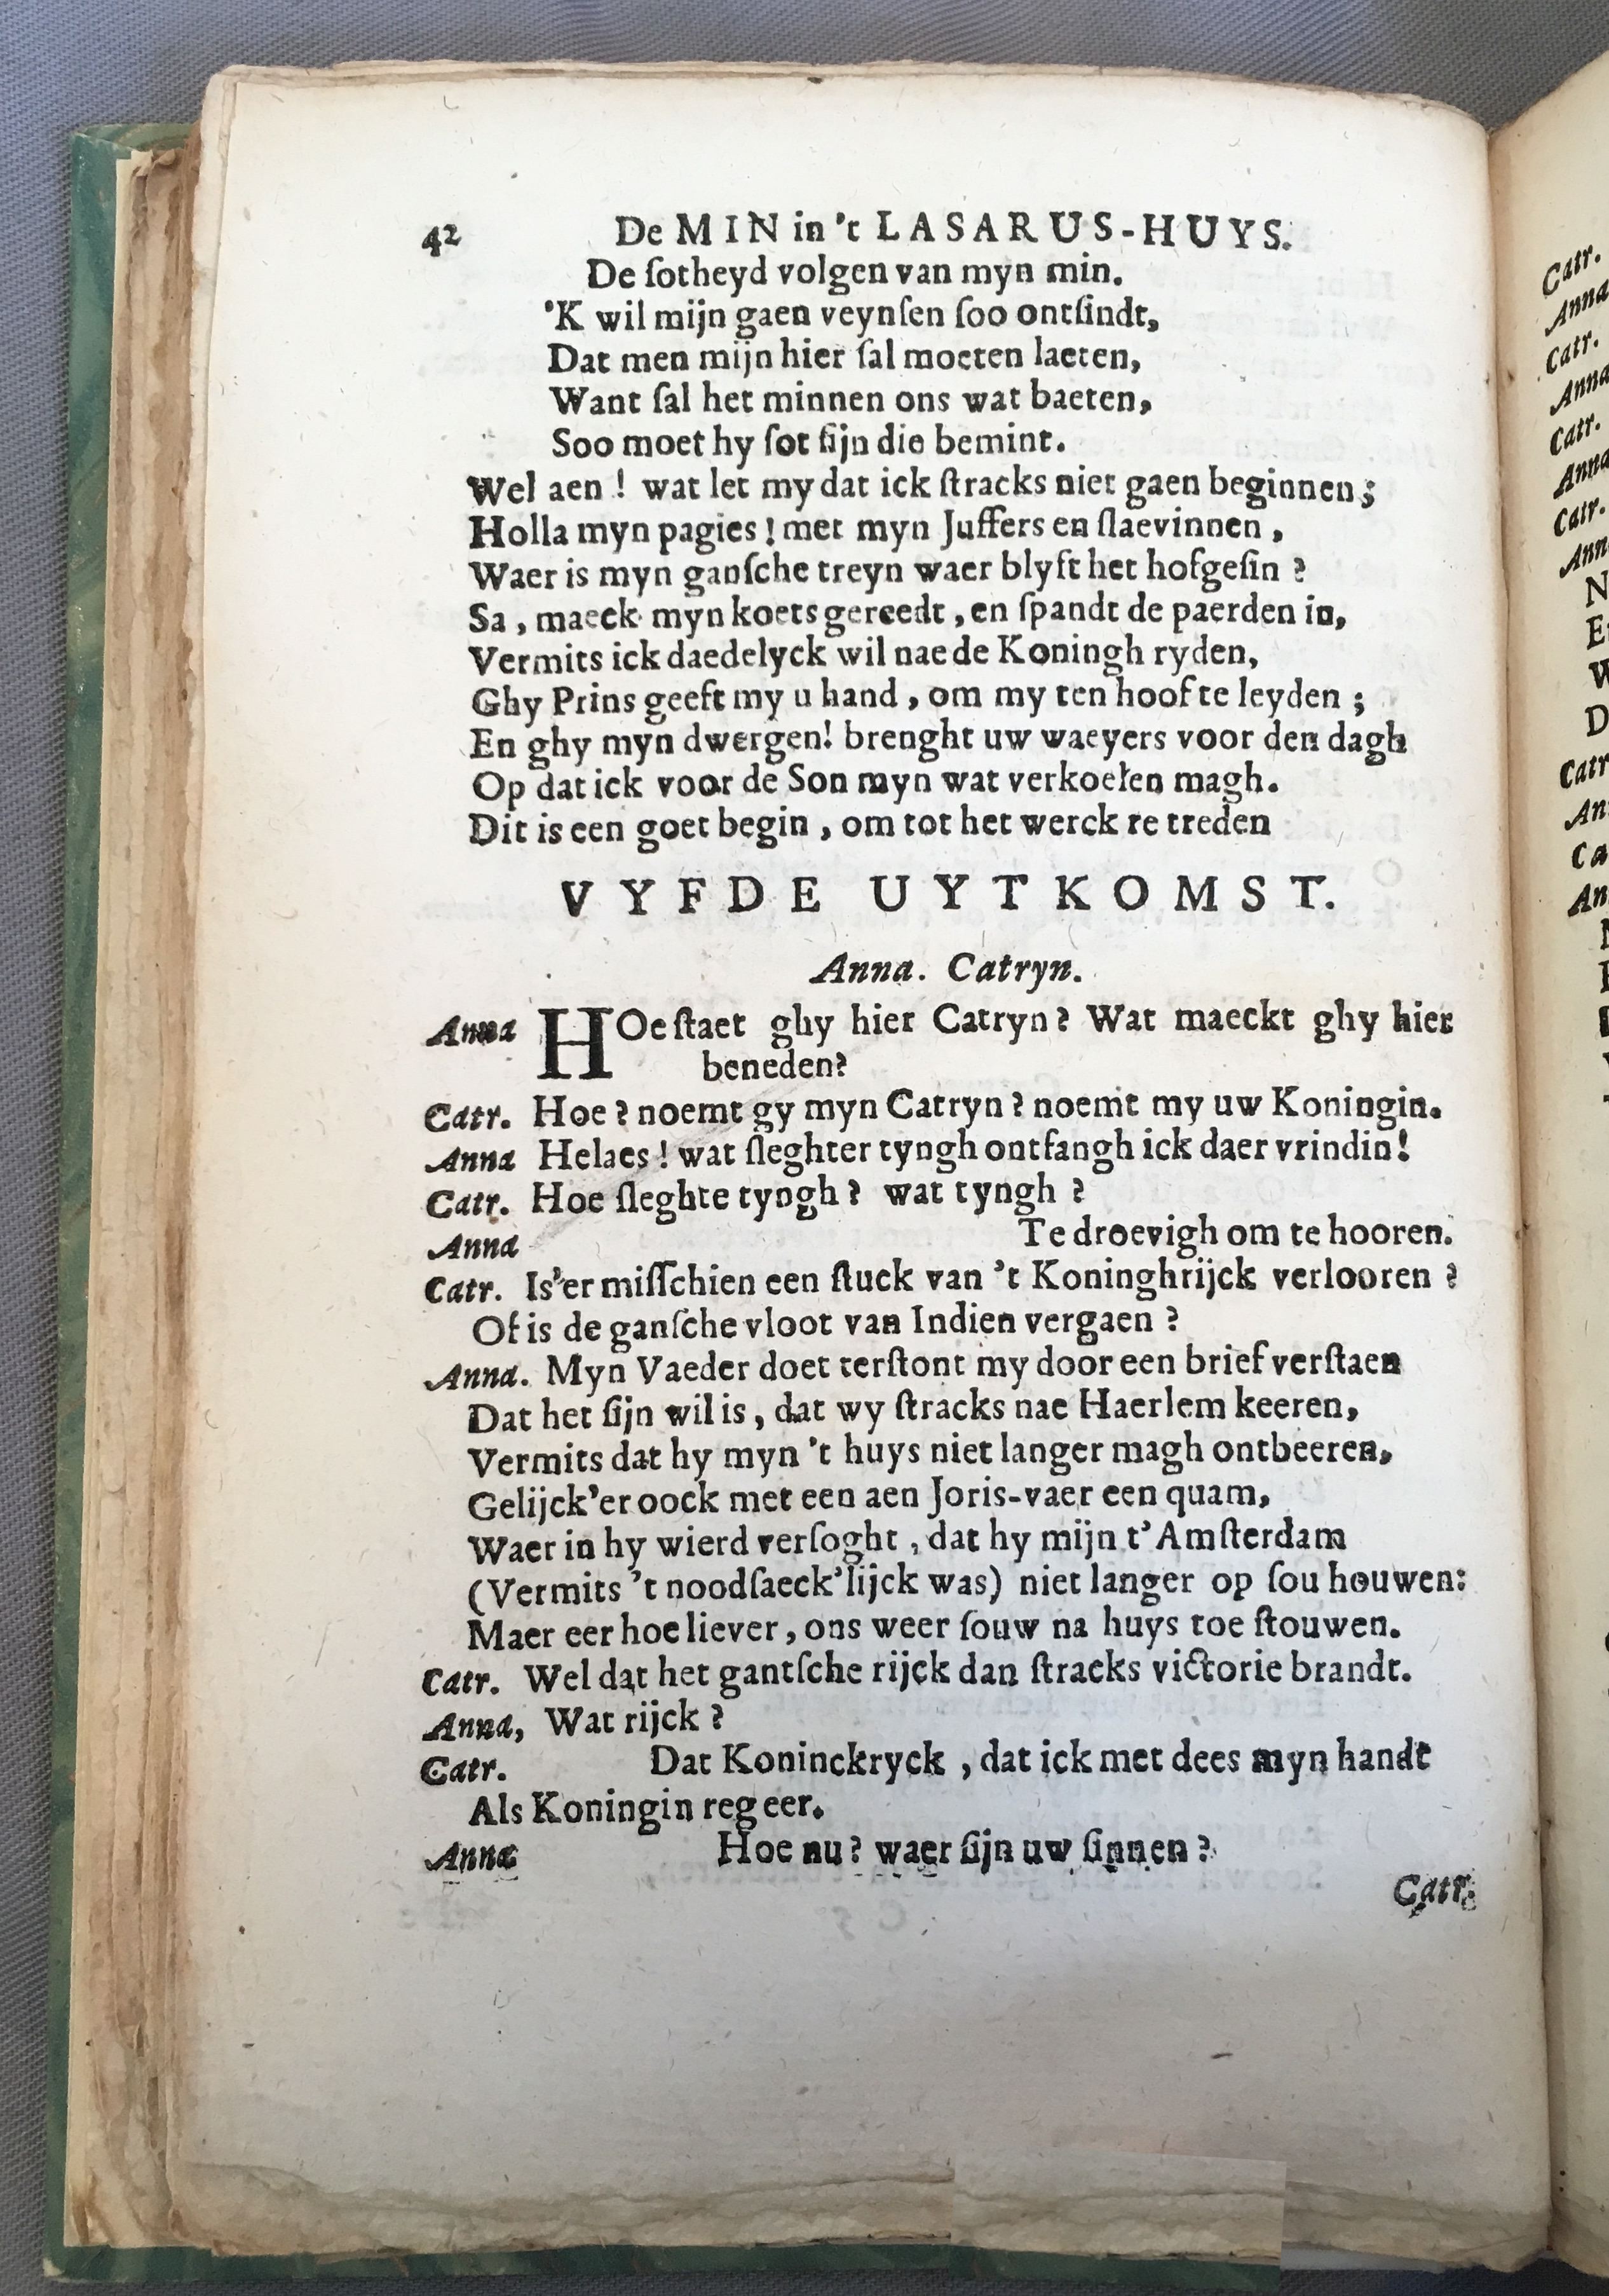 42 De MIN in 't LASARUS-HUYS.
De ſotheyd volgen van myn min.
'K wil mijn gaen veynſen ſoo ontſindt,
Dat men mijn hier ſal moeten laeten,
Want ſal het minnen ons wat baeten,
Soo moet hy ſot ſijn die bemint.
Wel aen ! wat let my dat ick ſtracks niet gaen beginnen;
Holla myn pagies ! met myn Juffers en ſlaevinnen,
Waer is myn ganſche treyn waer blyft het hofgeſin ?
Sa, maeck myn koets gereedt, en ſpandt de paerden in,
Vermits ick daedelyck wil nae de Koningh ryden,
Ghy Prins geeft my u hand, om my ten hoof te leyden ;
En ghy myn dwergen! brenght uw waeyers voor den dagh
Op dat ick voor de Son myn wat verkoelen magh.
Dit is een goet begin, om tot het werck te treden
VYFDE UYTKOMST.
Anna. Catryn.
Anna HOe ſtaet ghy hier Catryn? Wat maeckt ghy hier
beneden?
Catr. Hoe ? noemt gy myn Catryn ? noemt my uw Koningin.
Anna Helaes ! wat ſleghter tyngh ontfangh ick daer vrindin!
Catr. Hoe ſleghte tyngh ? wat tyngh ?
Anna Te droevigh om te hooren.
Catr. Is'er miſſchien een ſtuck van 't Koninghrijck verlooren ?
Of is de ganſche vloot van Indien vergaen ?
Anna. Myn Vaeder doet terſtont my door een brief verſtaen
Dat het ſijn wil is, dat wy ſtracks nae Haerlem keeren,
Vermits dat hy myn 't huys niet langer magh ontbeeren,
Gelijck'er oock met een aen Joris-vaer een quam,
Waer in hy wierd verſoght, dat hy mijn t'Amſterdam
(Vermits 't noodſaeck'lijck was) niet langer op ſou houwen:
Maer eer hoe liever, ons weer ſouw na huys toe ſtouwen.
Catr. Wel dat het gantſche rijck dan ſtracks victorie brandt.
Anna, Wat rijck ?
Catr. Dat Koninckryck, dat ick met dees myn handt
Als Koningin regeer.
Anna Hoe nu? waer ſijn uw ſinnen ?
Catr.
Catr.
Anna
Catr.
Anna
Catr.
Anna
Catr.
Ann
N
E
W
D
Catr
An
Ca
An